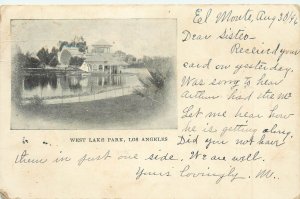 El Monte, Aug 30/06
Dear Sister
Received your
card on yesterday.
Was sorry to hear
Arthur had the
Let me hear how
he is getting along.
WEST LAKE PARK, LOS ANGELES.
Did you not have
them in just one side. We are well.
Yours Lovingly. M.